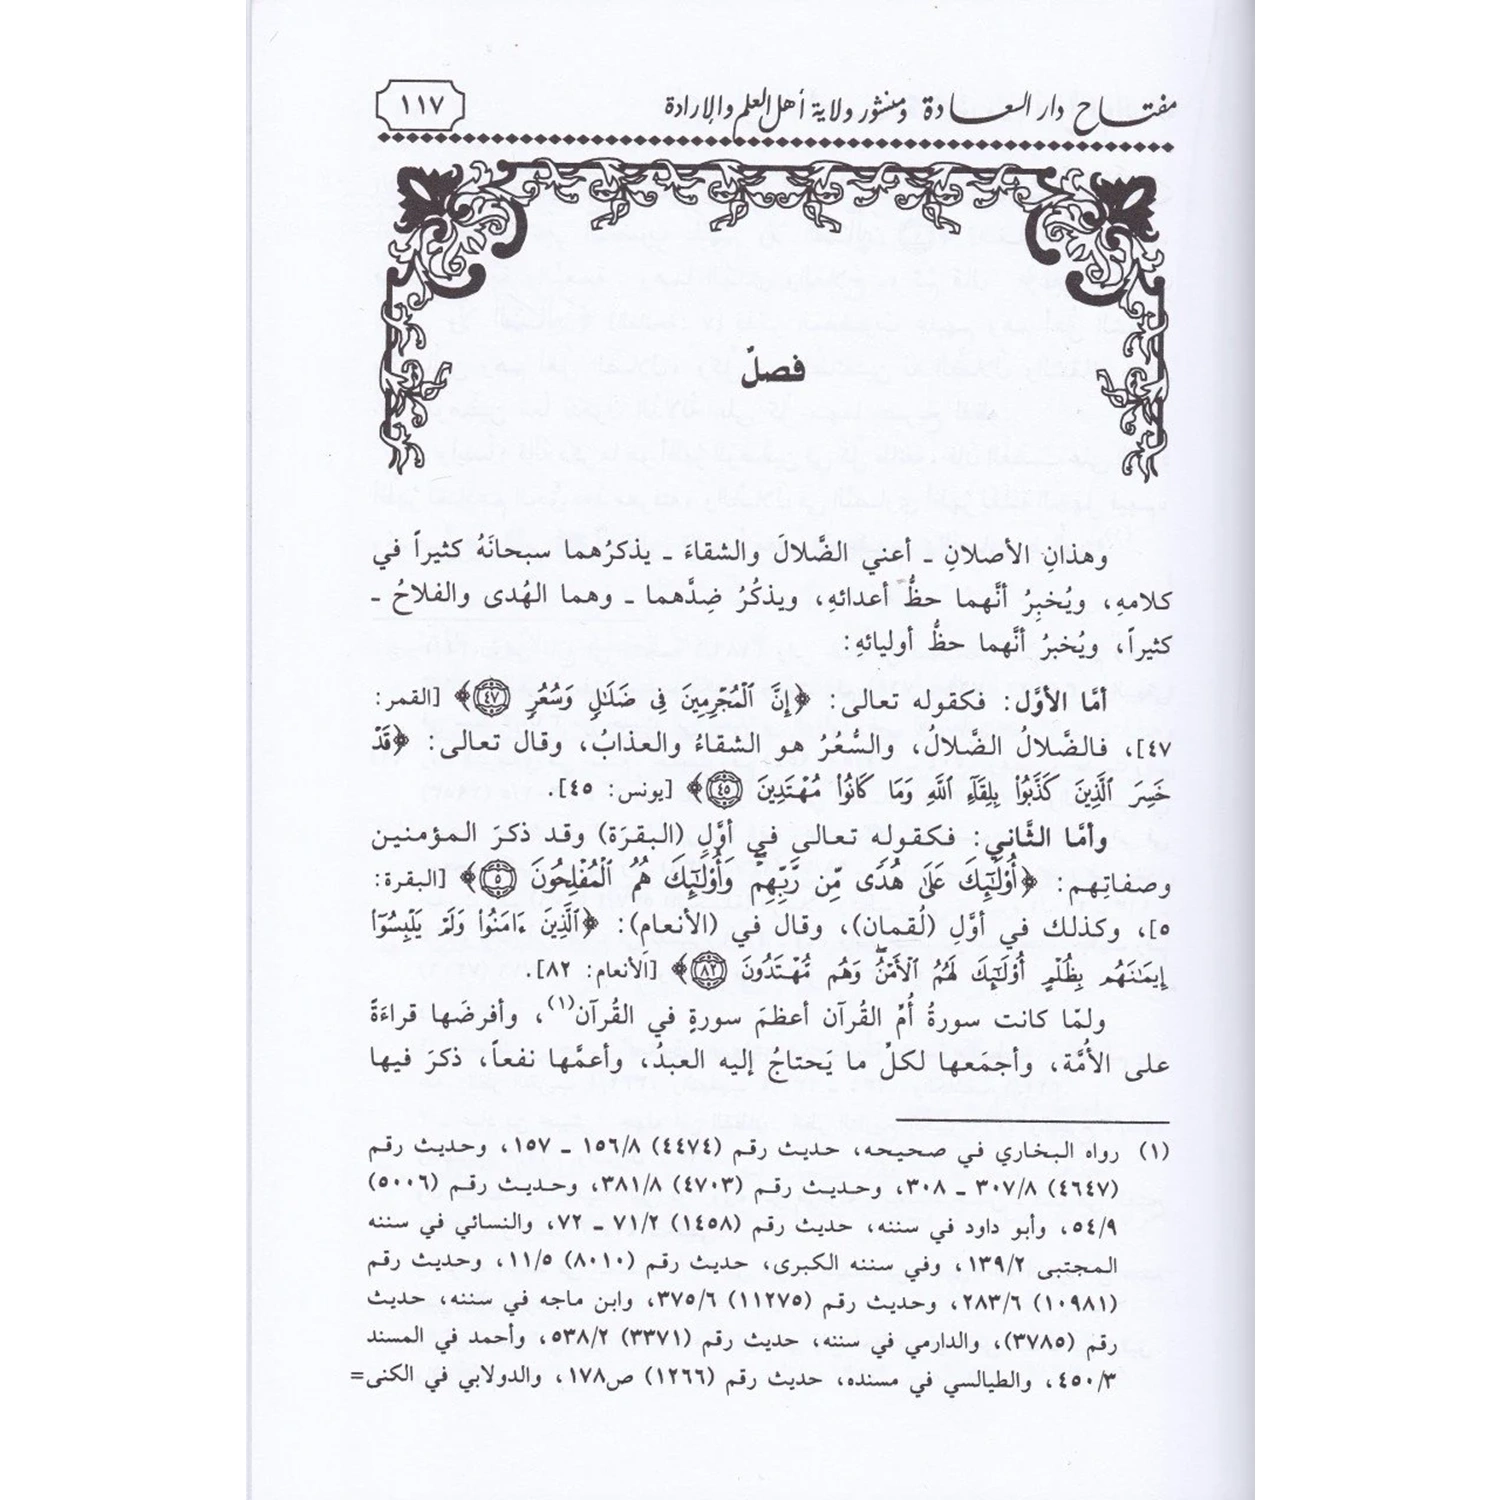 مفتاح دار السعادة ومنشور ولاية أهل العلم والإرادة
١١٧
فصلٌ
وهذانِ الأصلانِ ـ أعني الضَّلالَ والشقاءَ ـ يذكرُهما سبحانَهُ كثيراً في
كلامهِ، ويُخبِرُ أنَّهما حظُّ أعدائهِ، ويذكُرُ ضِدَّهما ـ وهما الهُدى والفلاحُ ـ
كثيراً، ويُخبرُ أنَّهما حظُّ أوليائهِ:
أمَّا الأوَّل: فكقوله تعالى: ﴿إِنَّ ٱلْمُجْرِمِينَ فِى ضَلَٰلٍ وَسُعُرٍ ٤٧﴾ [القمر:
٤٧]، فالضَّلالُ الضَّلالُ، والسُّعُرُ هو الشقاءُ والعذابُ، وقال تعالى: ﴿قَدْ
خَسِرَ ٱلَّذِينَ كَذَّبُوا۟ بِلِقَآءِ ٱللَّهِ وَمَا كَانُوا۟ مُهْتَدِينَ ٤٥﴾ [يونس: ٤٥].
وأمَّا الثَّاني: فكقوله تعالى في أوَّلِ (البقرَة) وقد ذكرَ المؤمنين
وصفاتِهم: ﴿أُو۟لَٰٓئِكَ عَلَىٰ هُدًى مِّن رَّبِّهِمْ ۖ وَأُو۟لَٰٓئِكَ هُمُ ٱلْمُفْلِحُونَ ٥﴾ [البقرة:
٥]، وكذلك في أوَّلِ (لُقمان)، وقال في (الأنعامِ): ﴿ٱلَّذِينَ ءَامَنُوا۟ وَلَمْ يَلْبِسُوٓا۟
إِيمَٰنَهُم بِظُلْمٍ أُو۟لَٰٓئِكَ لَهُمُ ٱلْأَمْنُ ۖ وَهُم مُّهْتَدُونَ ٨٢﴾ [الأنعام: ٨٢].
ولمّا كانت سورةُ أُمِّ القُرآن أعظمَ سورةٍ في القُرآن(١)، وأفرضَها قراءَةً
على الأُمَّة، وأجمَعها لكلِّ ما يَحتاجُ إليه العبدُ، وأعمَّها نفعاً، ذكرَ فيها
(١) رواه البخاري في صحيحه، حديث رقم (٤٤٧٤) ١٥٦/٨ ـ ١٥٧، وحديث رقم
(٤٦٤٧) ٣٠٧/٨ ـ ٣٠٨، وحديث رقم (٤٧٠٣) ٣٨١/٨، وحديث رقم (٥٠٠٦)
٥٤/٩، وأبو داود في سننه، حديث رقم (١٤٥٨) ٧١/٢ ـ ٧٢، والنسائي في سننه
المجتبى ١٣٩/٢، وفي سننه الكبرى، حديث رقم (٨٠١٠) ١١/٥، وحديث رقم
(١٠٩٨١) ٢٨٣/٦، وحديث رقم (١١٢٧٥) ٣٧٥/٦، وابن ماجه في سننه، حديث
رقم (٣٧٨٥)، والدارمي في سننه، حديث رقم (٣٣٧١) ٥٣٨/٢، وأحمد في المسند
٤٥٠/٣، والطيالسي في مسنده، حديث رقم (١٢٦٦) ص١٧٨، والدولابي في الكنى=